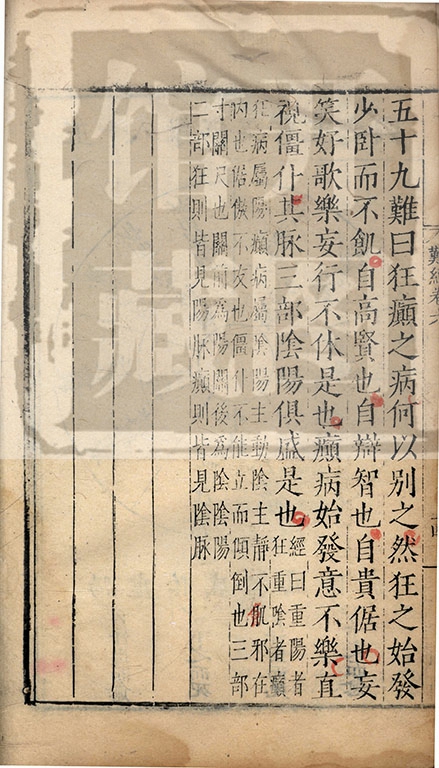 五十九難曰狂癲之病何以別之然狂之始發
少卧而不飢自高賢也自辯智也自貴倨也妄
笑好歌樂妄行不休是也癲病始發意不樂直
視僵仆其脉三部陰陽俱盛是也
經曰重陽者
狂重陰者癲
狂病屬陽癲病屬陰陽主動陰主靜不飢邪在
内也倨傲不友也僵仆不能立而傾倒也三部
寸關尺也關前為陽關後為陰陰陽
二部狂則皆見陽脉癲則皆見陰脉
難經卷六